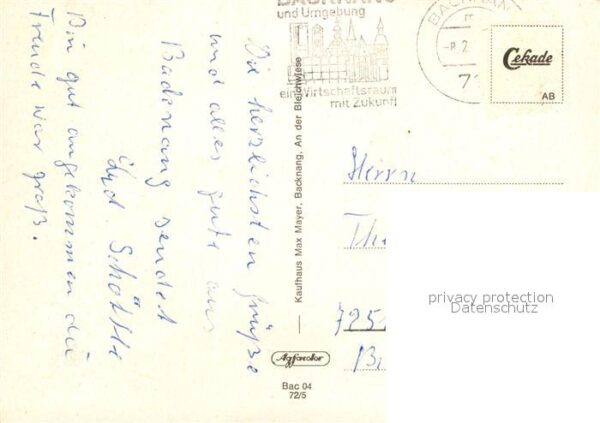 BACKNANG
und Umgebung
ein Wirtschaftsraum
mit Zukunft
BACKNANG
-8.2
71
Cekade
AB
Die herzlichsten Grüße
und alles gute aus
Backnang sendet
Lyd. Schöttle
Bin gut angekommen die
Freude war groß.
Kaufhaus Max Mayer, Backnang, An der Bleichwiese
Agfacolor
Bac 04
72/5
Herrn
Th
725
privacy protection
Datenschutz